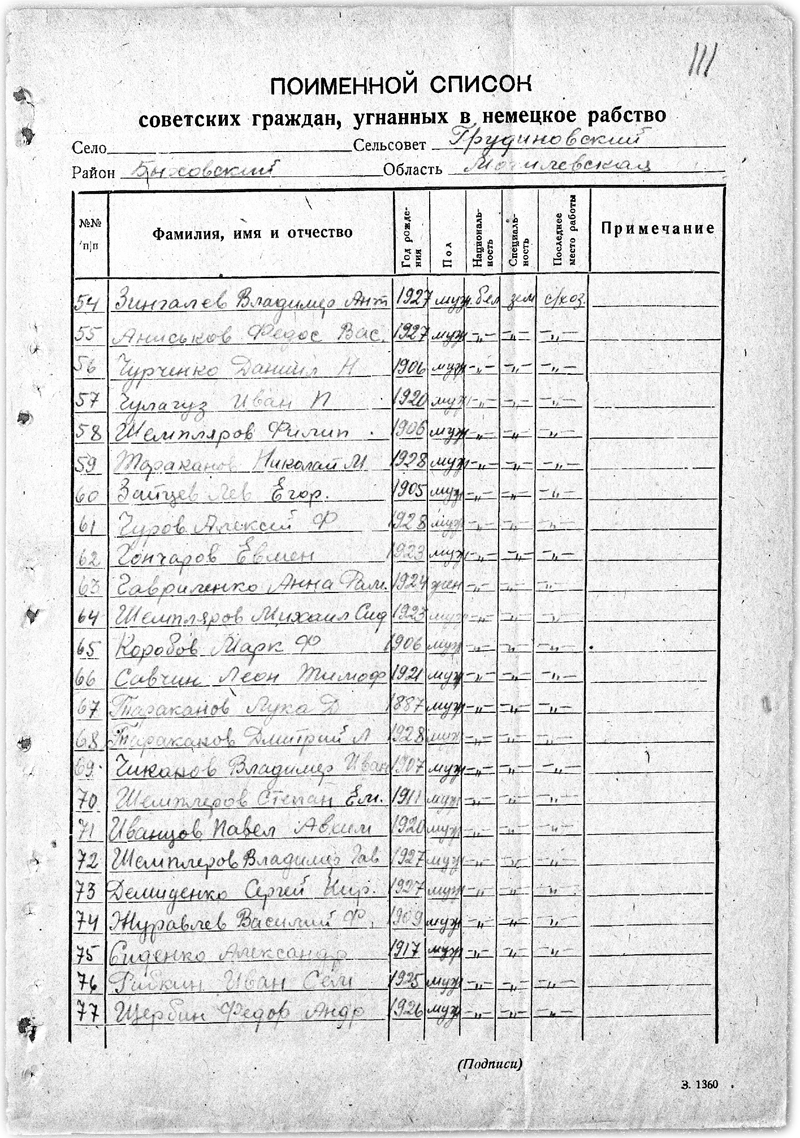 111
ПОИМЕННОЙ СПИСОК
советских граждан, угнанных в немецкое рабство
Село Сельсовет Грудиновский
Район Быховский Область Могилевская
№№ п|п Фамилия, имя и отчество Год рождения Пол Националь-ность Специаль-ность Последнее место работы Примечание
54 Зингалев Владимир Ант 1927 муж бел зем с/хоз
55 Аниськов Федос Вас. 1927 муж -„- -„- -„-
56 Чурченко Даниил Н 1906 муж -„- -„- -„-
57 Чулагуз Иван П 1920 муж -„- -„- -„-
58 Шемпляров Филип 1906 муж -„- -„- -„-
59 Тараканов Николай М 1928 муж -„- -„- -„-
60 Зайцев Лев Егор. 1905 муж -„- -„- -„-
61 Чуров Алексей Ф 1928 муж -„- -„- -„-
62 Гончаров Евмен 1923 муж -„- -„- -„-
63 Гавриленко Анна 1924 жен -„- -„- -„-
64 Шемпляров Михаил Сид 1923 муж -„- -„- -„-
65 Коробов Марк Ф 1906 муж -„- -„- -„-
66 Савчин Леон Тимоф 1921 муж -„- -„- -„-
67 Тараканов Лука Д 1887 муж -„- -„- -„-
68 Тараканов Дмитрий Л 1928 муж -„- -„- -„-
69 Чиканов Владимир Иван 1907 муж -„- -„- -„-
70 Шемплеров Степан Ем. 1911 муж -„- -„- -„-
71 Иванцов Павел Авсим 1920 муж -„- -„- -„-
72 Шемплеров Владимир Гав 1927 муж -„- -„- -„-
73 Демиденко Сергей Кир. 1927 муж -„- -„- -„-
74 Журавлев Василий Ф. 1909 муж -„- -„- -„-
75 Сиденко Александр 1917 муж -„- -„- -„-
76 Рабкин Иван Сем 1925 муж -„- -„- -„-
77 Щербин Федор Андр 1926 муж -„- -„- -„-
(Подписи)
З. 1360